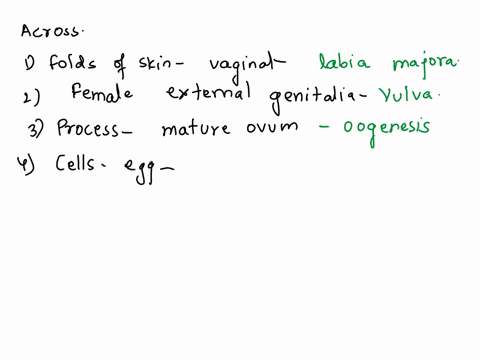 Across.
1) folds of skin- vaginal- labia majora.
2) Female external genitalia- Vulva.
3) Process- mature ovum - oogenesis
4) Cells- egg-